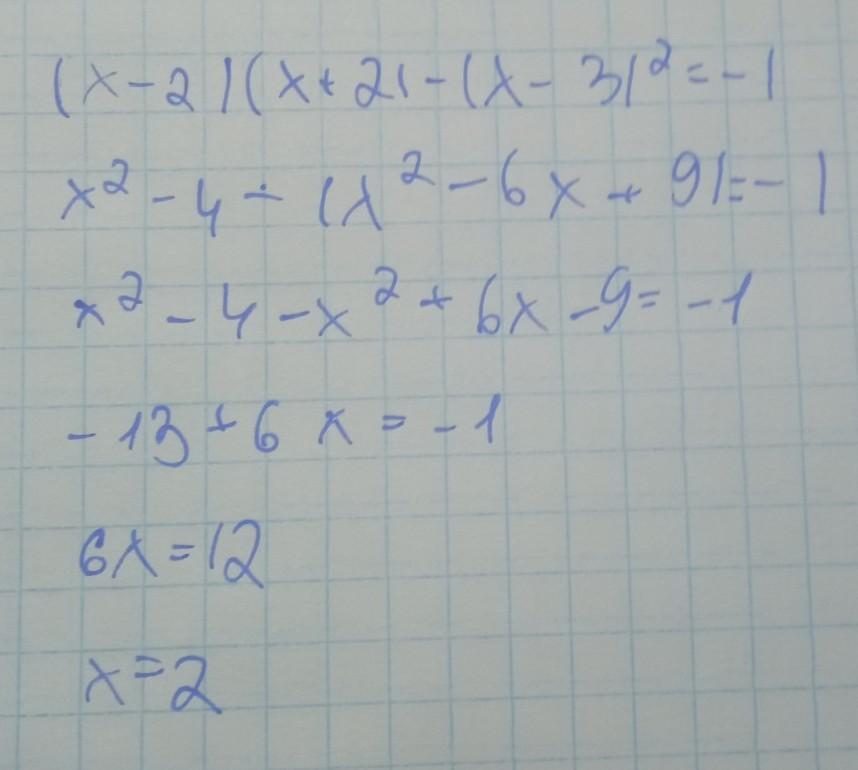 (x-2)(x+2)-(x-3)²=-1
x²-4-(x²-6x+9)=-1
x²-4-x²+6x-9=-1
-13+6x=-1
6x=12
x=2